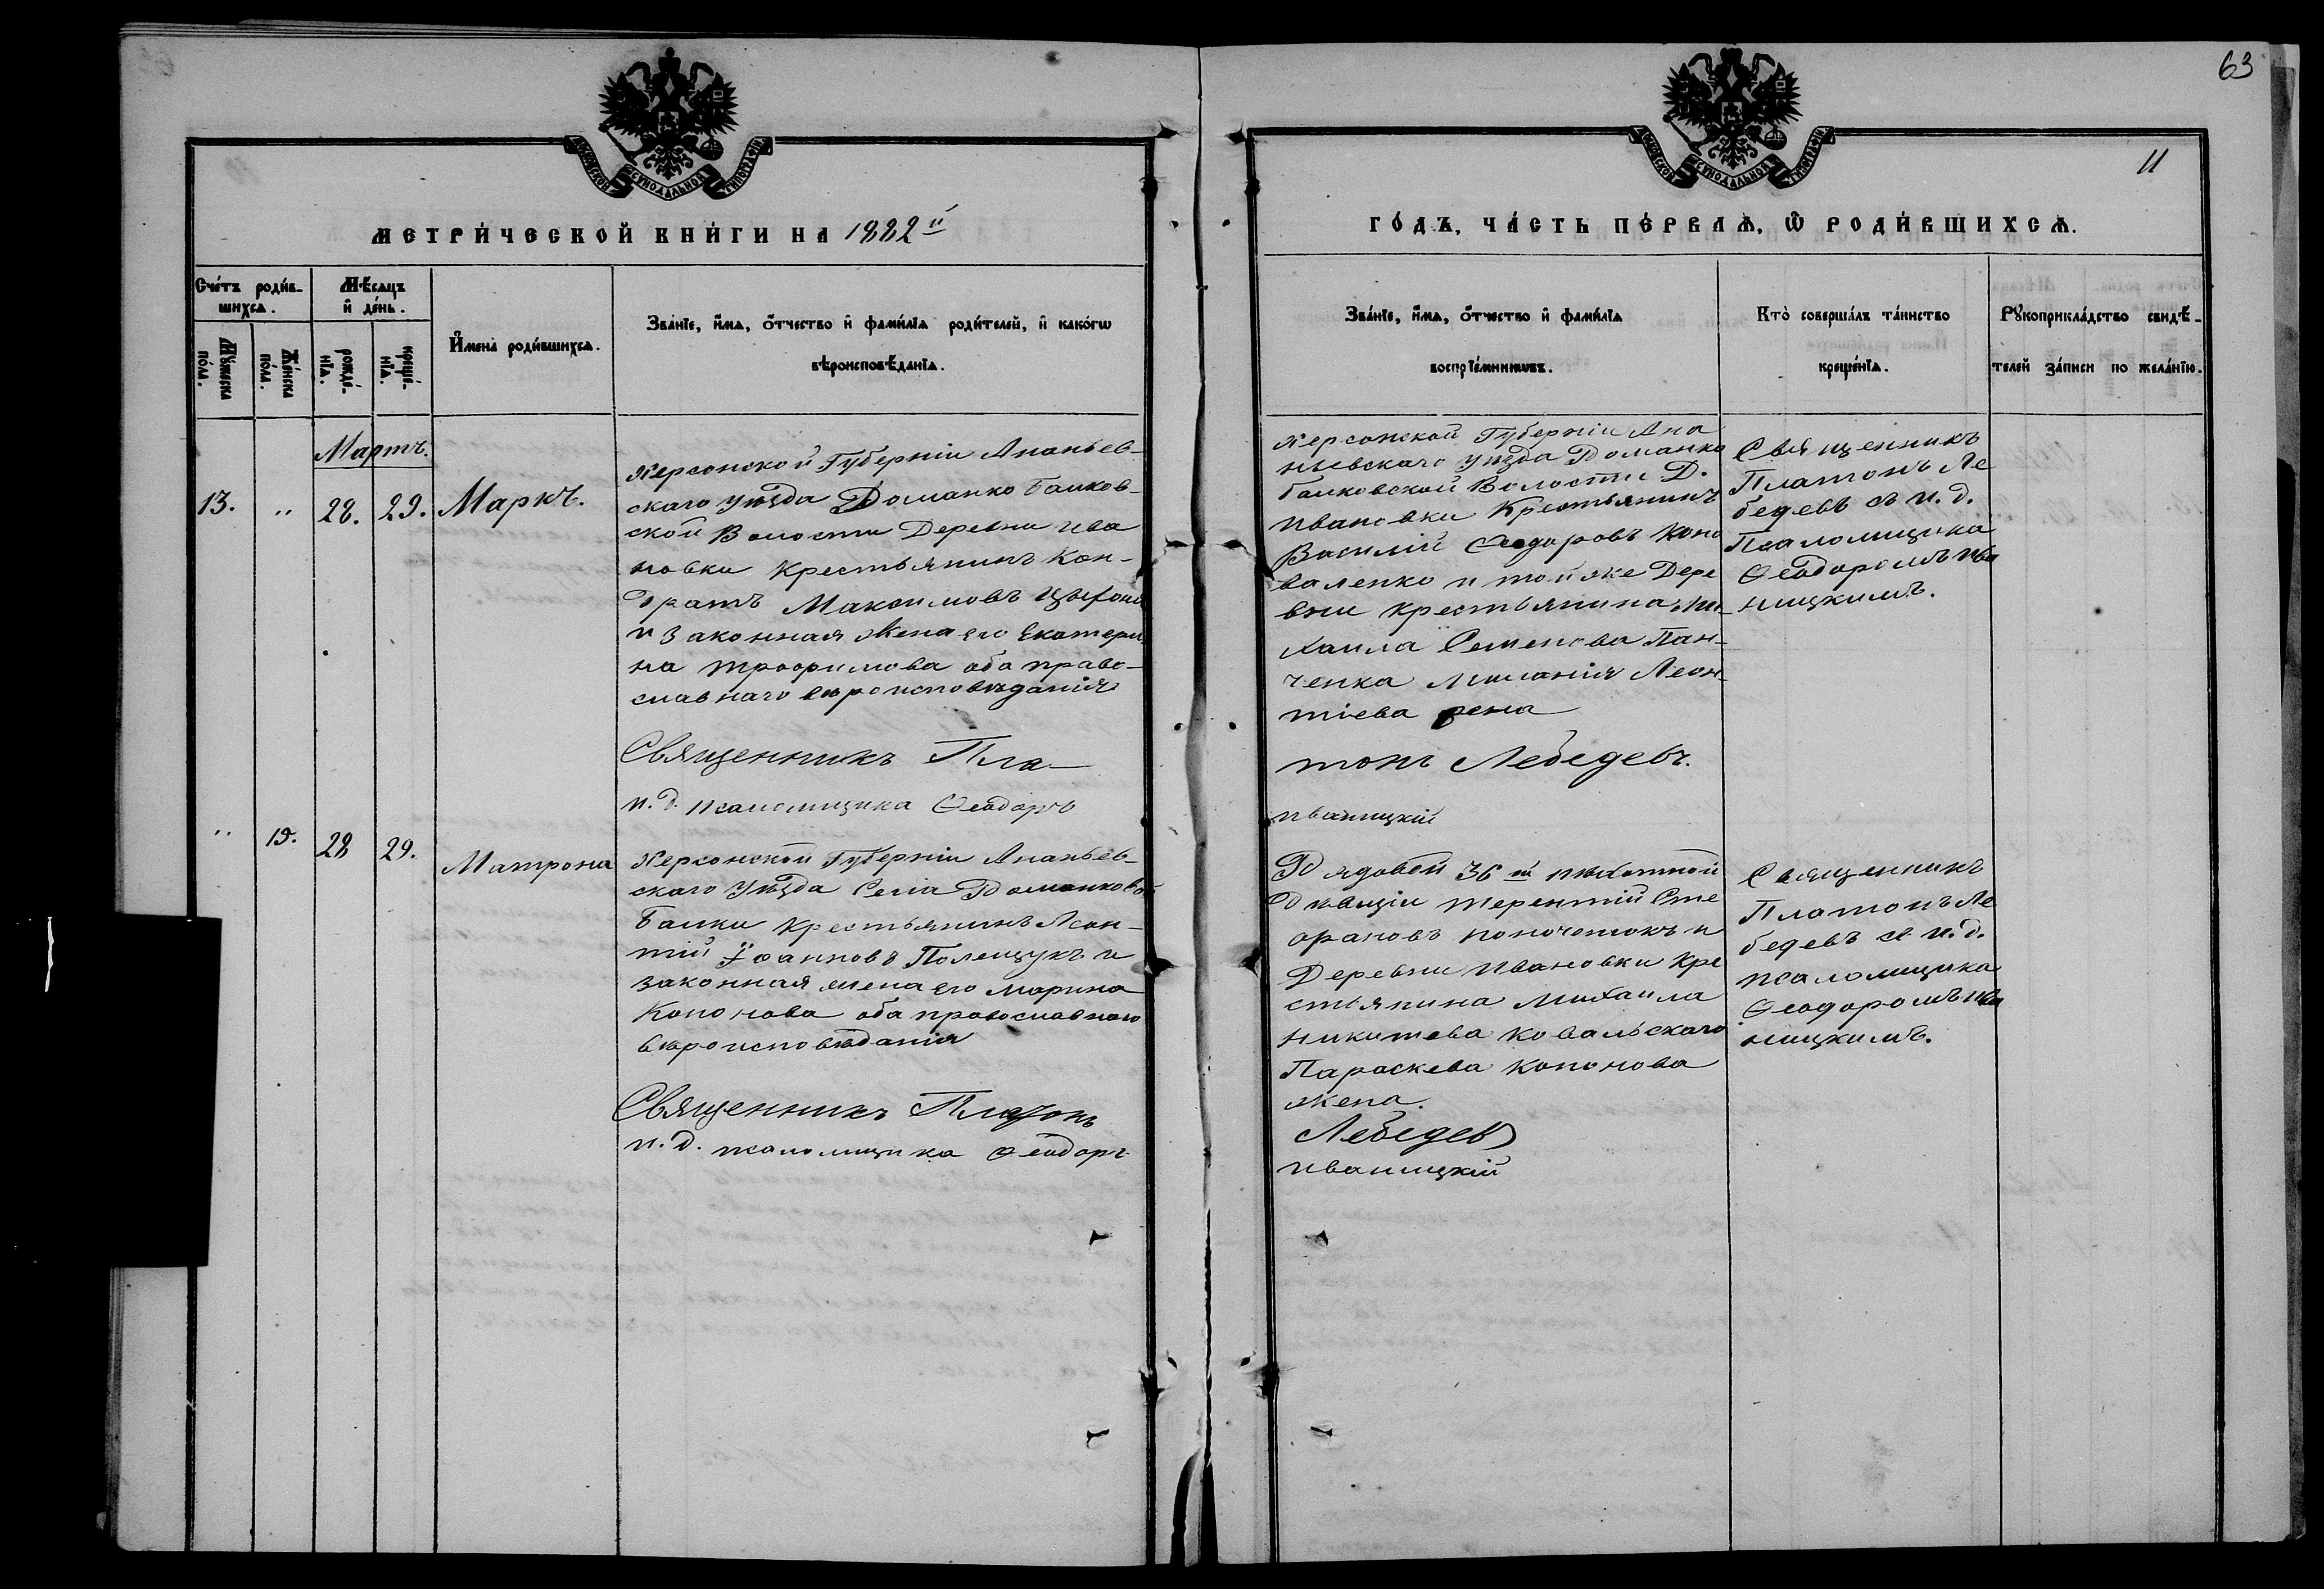 63
11
МЕТРИ́ЧЕСКОЙ КНИ́ГИ НА 1882 й
ГО́ДЪ, ЧА́СТЬ ПЕ́РВАѦ, Ѡ҆ РОДИ́ВШИХСѦ.
Сче́тъ роди́в-
шихсѧ.
Мꙋ́жеска по́ла.
Же́нска по́ла.
Мѣ́сѧцъ
и҆ де́нь.
рожде́-нїѧ.
креще́-нїѧ.
И҆мена̀ роди́вшихсѧ.
Зва́нїе, и҆́мѧ, ѻ҆́тчество и҆ фами́лїѧ роди́телей, и҆ како́гѡ
вѣроисповѣ́данїѧ.
Зва́нїе, и҆́мѧ, ѻ҆́тчество и҆ фами́лїѧ
воспрїе́мникѡвъ.
Кто̀ соверша́лъ та́инство
креще́нїѧ.
Рꙋкоприкла́дство свидѣ́-
телей за́писи по жела́нїю.
Мартъ.
13. " 28. 29. Маркъ.
Херсонской Губерніи Ананьев-
скаго уѣзда Доманко Балков-
ской Волости Деревни Ива
новки крестьянинъ Кон-
дратъ Максимовъ
и законная жена его Екатери
на Трофимова оба право-
славнаго вѣроисповѣданія
Херсонской Губерніи Ана
ньевскаго уѣзда Доманко
балковской Волости Д.
Ивановки Крестьянинъ
Василій Ѳеодоровъ Коно
валенко и той же Дере
вни крестьянина Ми-
хаила Семенова Пан-
ченка Миланія Леон-
тіева жена
Священникъ
Платонъ Ле
бедевъ съ и. д.
Псаломщика
Ѳеодоромъ Ива
ницкимъ.
Священникъ Пла-
тонъ Лебедевъ.
и. д. псаломщика Ѳеодоръ
Иваницкій
" 15. 28 29. Матрона
Херсонской Губерніи Ананьев-
скаго уѣзда Села Доманковой
Балки крестьянинъ Леон-
тій Іоанновъ Полещукъ и
законная жена его Марина
Кононова оба православнаго
вѣроисповѣданія
Рядовой 36 ой пѣхотной
Дивизіи Терентій Сте
фановъ и
Деревни Ивановки кре
стьянина Михаила
Никитева Ковальскаго
Параскева Кононова
жена.
Священникъ
Платонъ Ле
бедевъ съ и. д.
псаломщика
Ѳеодоромъ Ива
ницкимъ.
Священникъ Платонъ
Лебедев
и. д. псаломщика Ѳеодоръ
Иваницкій